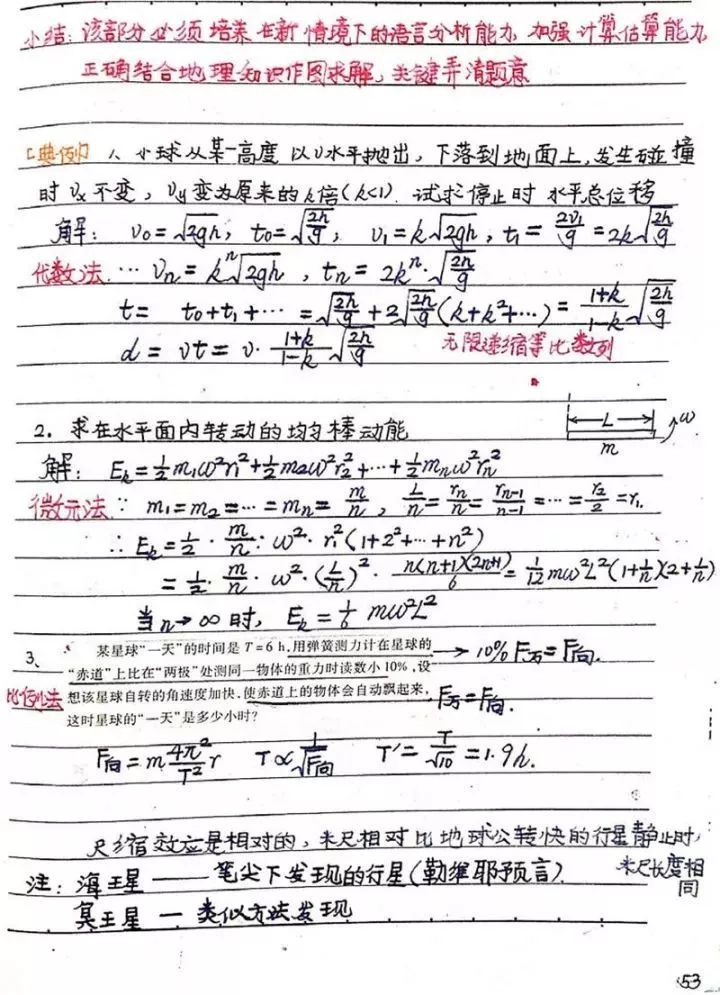 小结：该部分必须培养在新情境下的语言分析能力 加强计算估算能力
正确结合地理知识作图求解，关键弄清题意
[典例] 1、小球从某一高度以υ水平抛出，下落到地面上，发生碰撞
时υx不变，υy变为原来的k倍(k<1). 试求停止时水平总位移
解： υ0=√(2gh), t0=√(2h/g)； υ1=k√(2gh), t1=2υ1/g=2k√(2h/g)
代数法 … υn=k^n√(2gh) , tn=2k^n·√(2h/g)
t= t0+t1+…=√(2h/g)+2√(2h/g)(k+k²+…)=(1+k)/(1-k)√(2h/g)
d=υt=υ·(1+k)/(1-k)√(2h/g) 无限递缩等比数列
2. 求在水平面内转动的均匀棒动能
L ω
m
解： Ek=½m1ω²r1²+½m2ω²r2²+…+½mnω²rn²
微元法 ∵ m1=m2=…=mn=m/n , L/n=rn/n=rn-1/(n-1)=…=r2/2=r1.
∴ Ek=½·m/n·ω²·r1²(1+2²+…+n²)
=½·m/n·ω²·(L/n)²·n(n+1)(2n+1)/6=1/12mω²L²(1+1/n)(2+1/n)
当n→∞时, Ek=1/6 mω²L²
3、 某星球“一天”的时间是T=6 h,用弹簧测力计在星球的
“赤道”上比在“两极”处测同一物体的重力时读数小10%,设 → 10%F万=F向.
比例法 想该星球自转的角速度加快,使赤道上的物体会自动飘起来, F万=F向.
这时星球的“一天”是多少小时?
F向=m4π²/T²r T∝1/√F向 T′=T/√10=1.9h.
尺缩效应是相对的，米尺相对比地球公转快的行星静止时，
米尺长度相同
注：海王星 —— 笔尖下发现的行星(勒维耶预言)
冥王星 — 类似方法发现
53